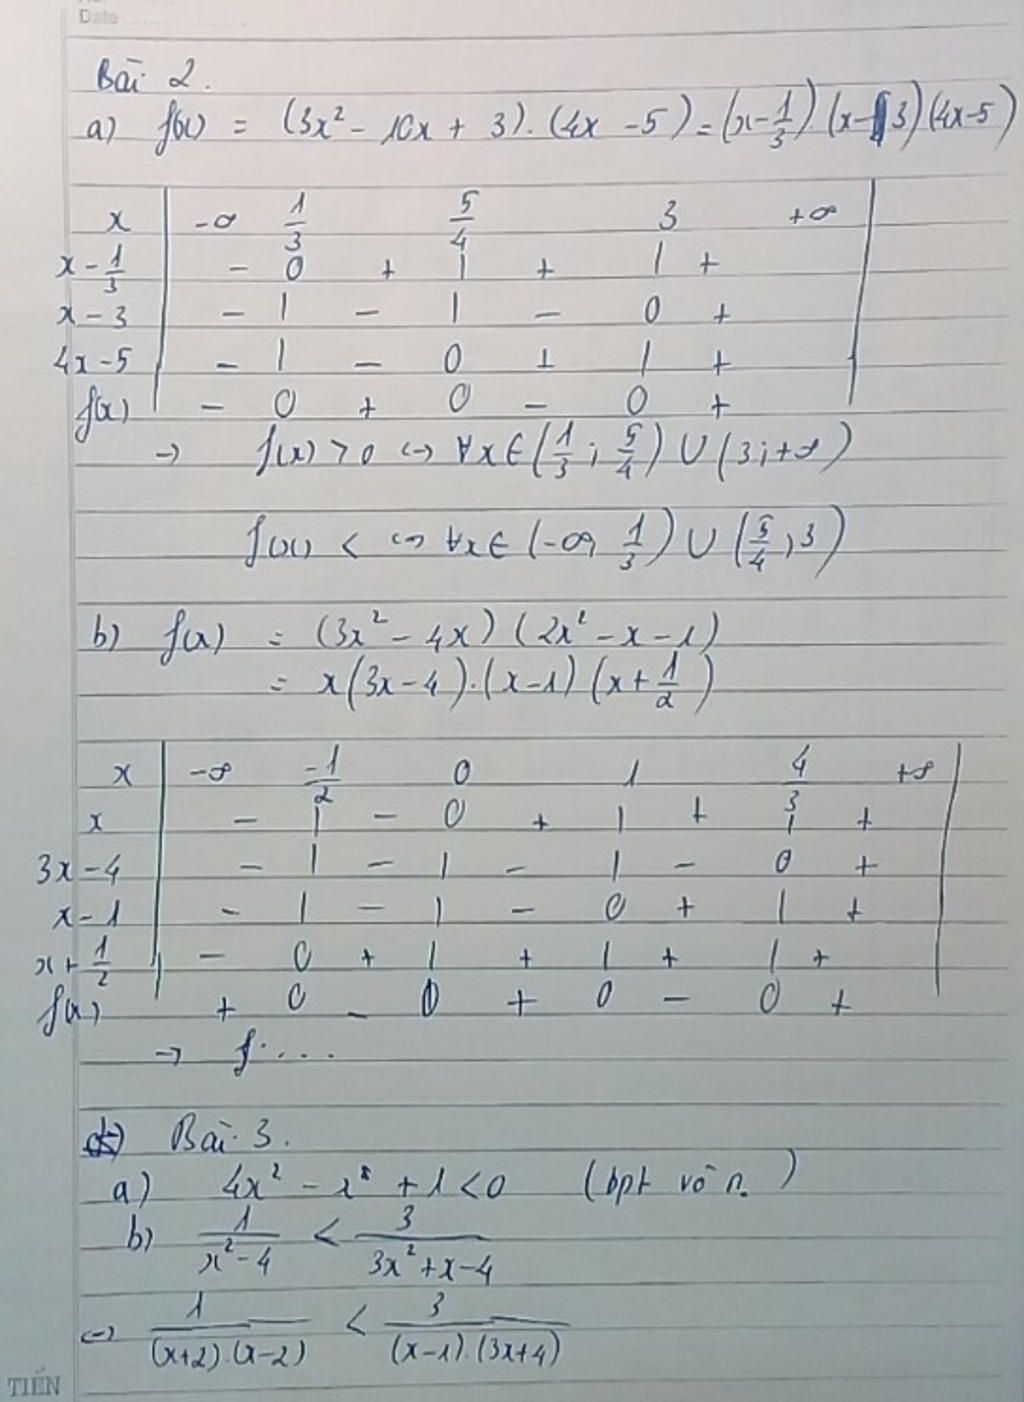 Date
Bài 2.
a) f(x) = (3x² - 10x + 3).(4x - 5) = (x - 1/3).(x - 3)(4x - 5)
x | -∞ 1/3 5/4 3 +∞
x - 1/3 | - 0 + | + | +
x - 3 | - | - | - 0 +
4x - 5 | - | - 0 + | +
f(x) | - 0 + 0 - 0 +
→ f(x) > 0 ↔ ∀x ∈ (1/3 ; 5/4) ∪ (3 ; +∞)
f(x) < ↔ ∀x ∈ (-∞, 1/3) ∪ (5/4 , 3)
b) f(x) = (3x² - 4x)(2x² - x - 1)
= x(3x - 4).(x - 1)(x + 1/2)
x | -∞ -1/2 0 1 4/3 +∞
x | - | - 0 + | + | +
3x - 4 | - | - | - | - 0 +
x - 1 | - | - | - 0 + | +
x + 1/2 | - 0 + | + | + | +
f(x) + 0 - 0 + 0 - 0 +
→ f....
Bài 3.
a) 4x² - x + 1 < 0 (bpt vô n.)
b) 1/(x² - 4) < 3/(3x² + x - 4)
↔ 1/((x+2).(x-2)) < 3/((x-1).(3x+4))
TIẾN